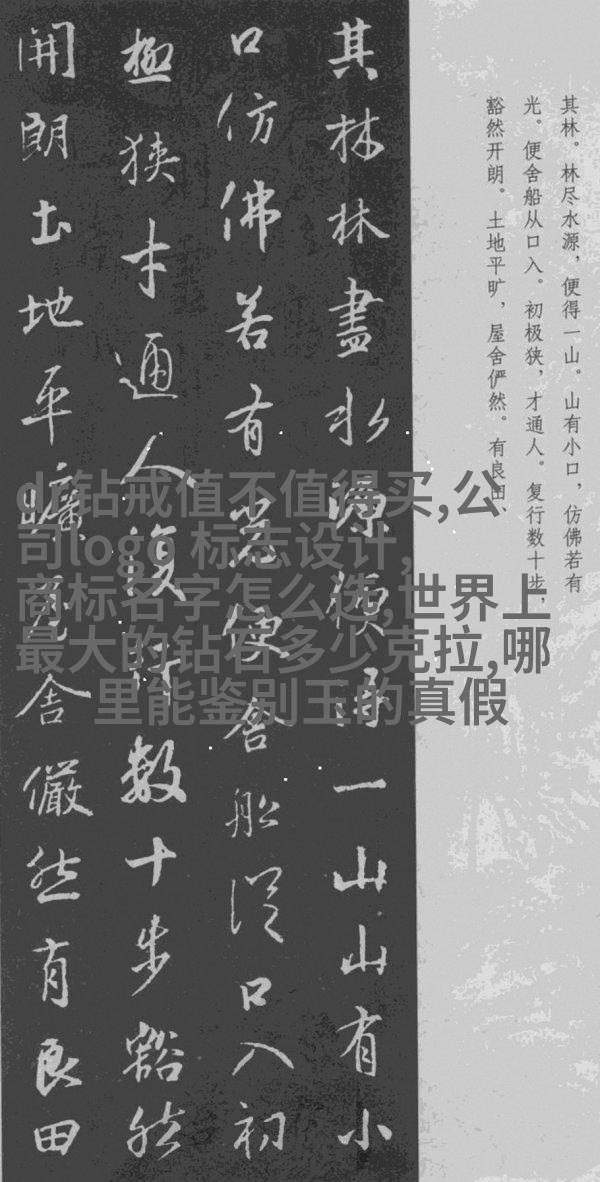 其林。林尽水源，便得一山。山有小口，仿佛若有
光。便舍船从口入。初极狭，才通人。复行数十步，
豁然开朗。土地平旷，屋舍俨然。有良田、
其林林盡水源便得一山山有小
口仿佛若有光便舍船從口入初
極狭才通人復行數十步豁然
開朗土地平曠屋舍儼然有良田
dr钻戒值不值得买,公
司logo 标志设计,
商标名字怎么选,世界上
最大的钻石多少克拉,哪
里能鉴别玉的真假